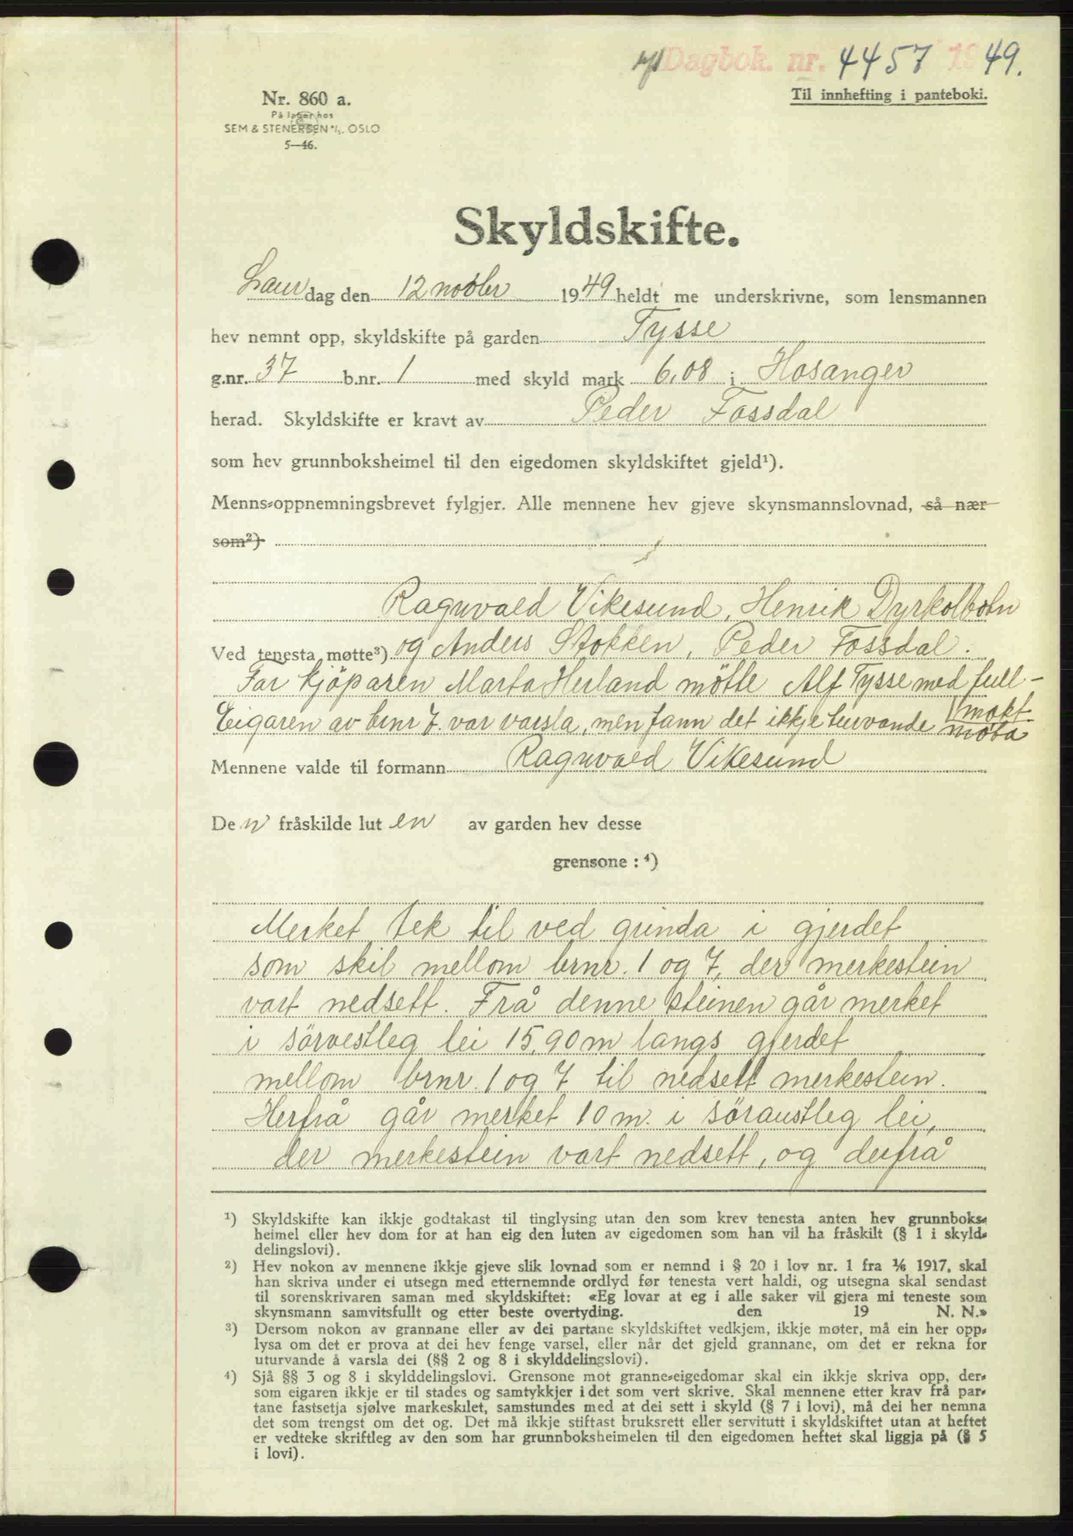 Dagbok. nr. 4457 1949.
Til innhefting i panteboki.
Nr. 860 a.
På lager hos
SEM & STENERSEN A/S. OSLO
5—46.
Skyldskifte.
Laurdag den 12 novbr 1949 heldt me underskrivne, som lensmannen
hev nemnt opp, skyldskifte på garden Tysse
g.nr. 37 b.nr. 1 med skyld mark 6,08 i Hosanger
herad. Skyldskifte er kravt av Peder Fossdal
som hev grunnboksheimel til den eigedomen skyldskiftet gjeld¹).
Menns-oppnemningsbrevet fylgjer. Alle mennene hev gjeve skynsmannslovnad, så nær
som²)
Ragnvald Vikesund, Henrik Dyrkolbotn
Ved tenesta møtte³) og Anders Stokken, Peder Fossdal.
For kjöparen Marta Herland mötte Alf Tysse med full-
makt
Eigaren av brnr 7. var varsla, men fann det ikkje turvande möta
Mennene valde til formann Ragnvald Vikesund
Den fråskilde luten av garden hev desse
grensone : ⁴)
Merket tek til ved grinda i gjerdet
som skil mellom brnr. 1 og 7, der merkestein
vart nedsett. Frå denne steinen går merket
i sörvestleg lei 15,90 m langs gjerdet
mellom brnr. 1 og 7 til nedsett merkestein.
Herfrå går merket 10 m. i söraustleg lei,
der merkestein vart nedsett, og derfrå
¹) Skyldskifte kan ikkje godtakast til tinglysing utan den som krev tenesta anten hev grunnboks-
heimel eller hev dom for at han eig den luten av eigedomen som han vil ha fråskilt (§ 1 i skyld-
delingslovi).
²) Hev nokon av mennene ikkje gjeve slik lovnad som er nemnd i § 20 i lov nr. 1 fra 1/6 1917, skal
han skriva under ei utsegn med etternemnde ordlyd før tenesta vert haldi, og utsegna skal sendast
til sorenskrivaren saman med skyldskiftet: «Eg lovar at eg i alle saker vil gjera mi teneste som
skynsmann samvitsfullt og etter beste overtyding. den 19 N. N.»
³) Dersom nokon av grannane eller av dei partane skyldskiftet vedkjem, ikkje møter, må ein her opp-
lysa om det er prova at dei hev fenge varsel, eller når det gjeld grannane, om det er rekna for
uturvande å varsla dei (§§ 2 og 8 i skylddelingslovi).
⁴) Sjå §§ 3 og 8 i skylddelingslovi. Grensone mot granne-eigedomar skal ein ikkje skriva opp, der-
som eigaren ikkje er til stades og samtykkjer i det som vert skrive. Skal mennene etter krav frå par-
tane fastsetja sjølve markeskilet, samstundes med at dei sett i skyld (§ 7 i lovi), må dei her nemna
det som trengst om det og. Det må ikkje stiftast bruksrett eller servitutt i skyldskiftet utan at heftet
er vedteke skriftleg av den som har grunnboksheimelen til den eigedomen heftet skal liggja på (§ 5
i lovi).